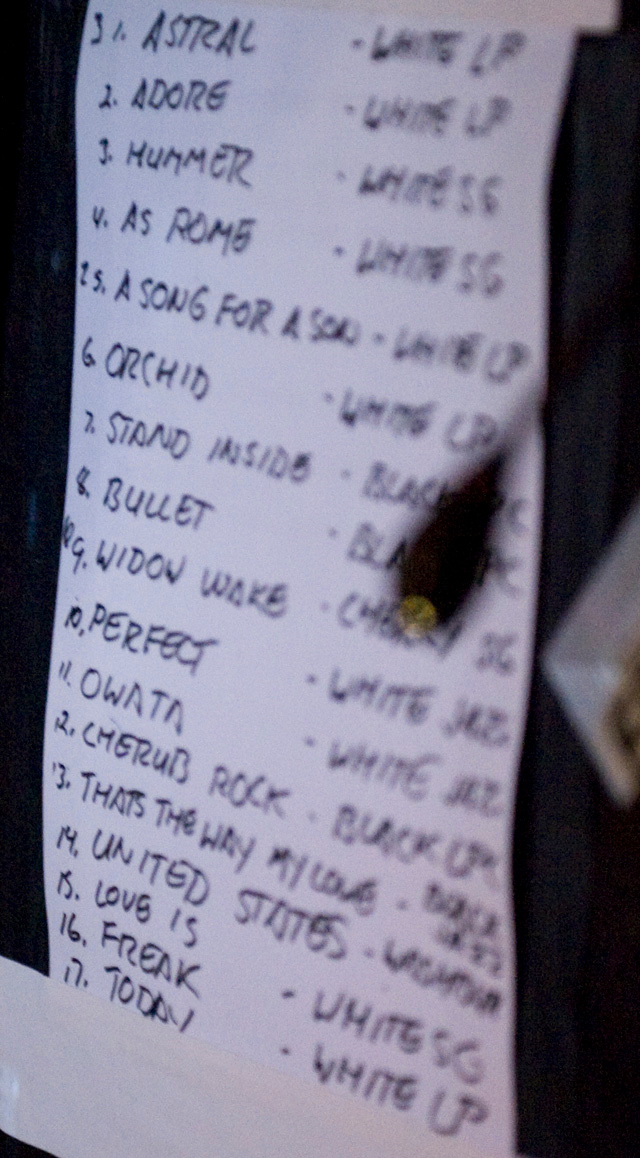 3 1. ASTRAL - WHITE LP
2. ADORE - WHITE LP
3. HUMMER - WHITE SG
4. AS ROME - WHITE SG
2 5. A SONG FOR A SON - WHITE LP
6. ORCHID - WHITE LP
7. STAND INSIDE - BLACK
8. BULLET
9. WIDOW WAKE - CHERRY SG
10. PERFECT - WHITE JAZZ
11. OWATA - WHITE JAZZ
12. CHERUB ROCK - BLACK
13. THATS THE WAY MY LOVE - BLACK JAZZ
14. UNITED STATES -
15. LOVE IS
16. FREAK - WHITE SG
17. TODAY - WHITE LP